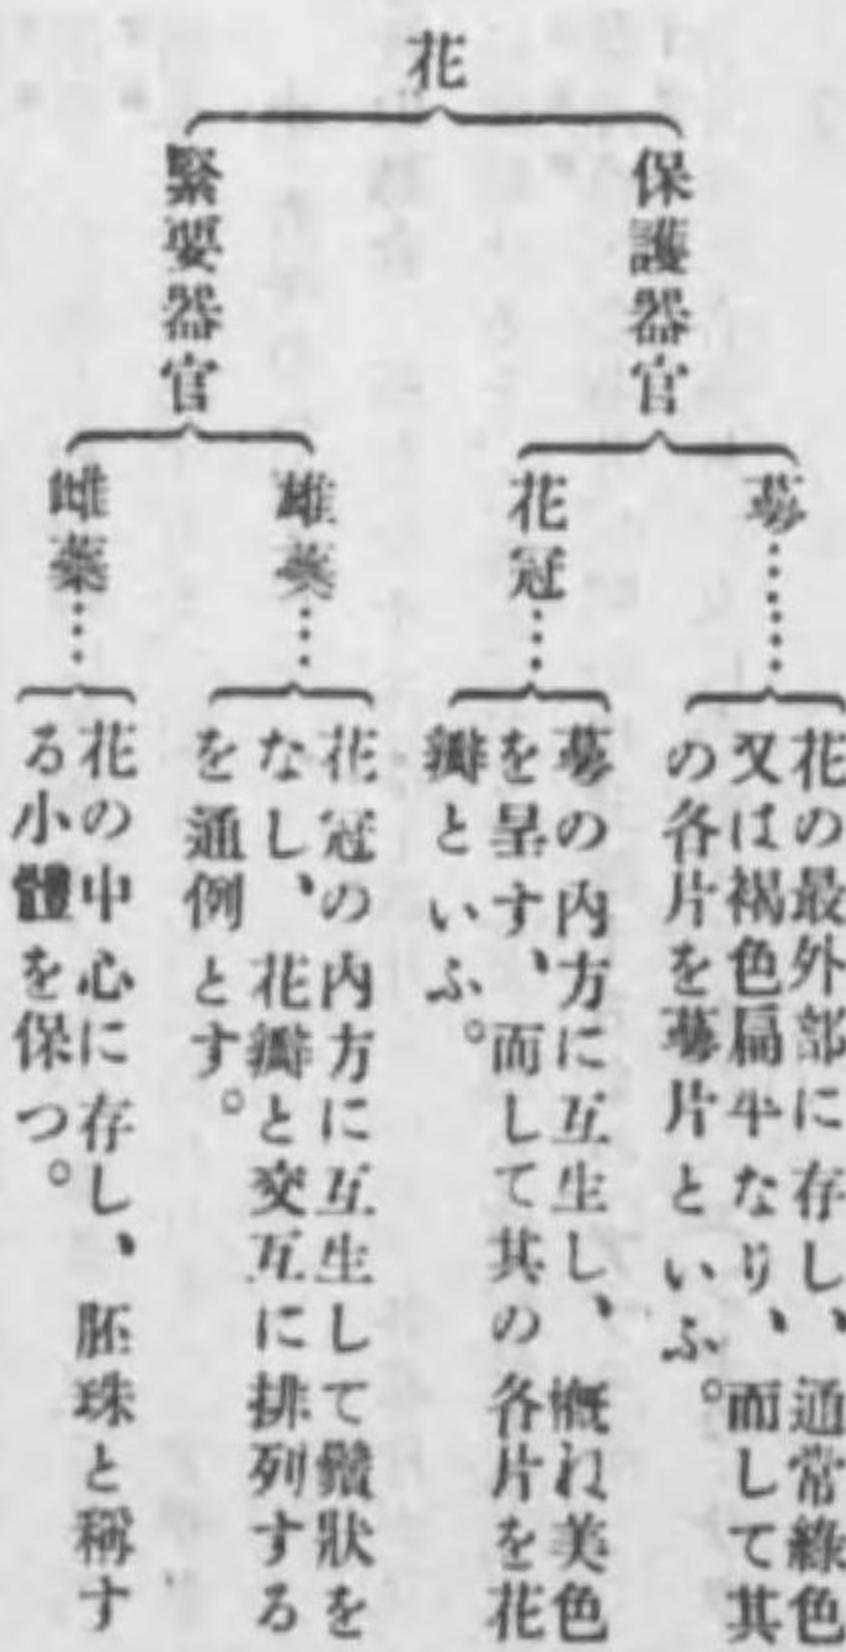 花
保護器官
萼……
花の最外部に存し、通常綠色
又は褐色扁平なり、而して其
の各片を萼片といふ。
花冠…
萼の內方に互生し、概ね美色
を呈す、而して其の各片を花
瓣といふ。
緊要器官
雄蘂…
花冠の內方に互生して鬚狀を
なし、花瓣と交互に排列する
を通例とす。
雌蘂…
花の中心に存し、胚珠と稱す
る小體を保つ。